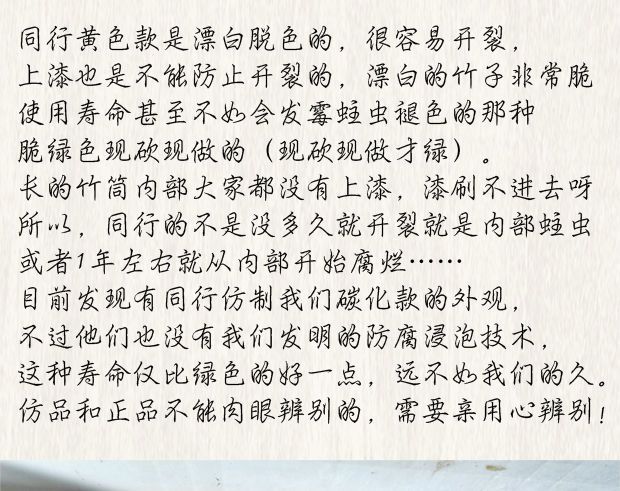 同行黄色款是漂白脱色的，很容易开裂，
上漆也是不能防止开裂的，漂白的竹子非常脆
使用寿命甚至不如会发霉蛀虫褪色的那种
脆绿色现砍现做的（现砍现做才绿）。
长的竹筒内部大家都没有上漆，漆刷不进去呀
所以，同行的不是没多久就开裂就是内部蛀虫
或者1年左右就从内部开始腐烂……
目前发现有同行仿制我们碳化款的外观，
不过他们也没有我们发明的防腐浸泡技术，
这种寿命仅比绿色的好一点，远不如我们的久。
仿品和正品不能肉眼辨别的，需要亲用心辨别！